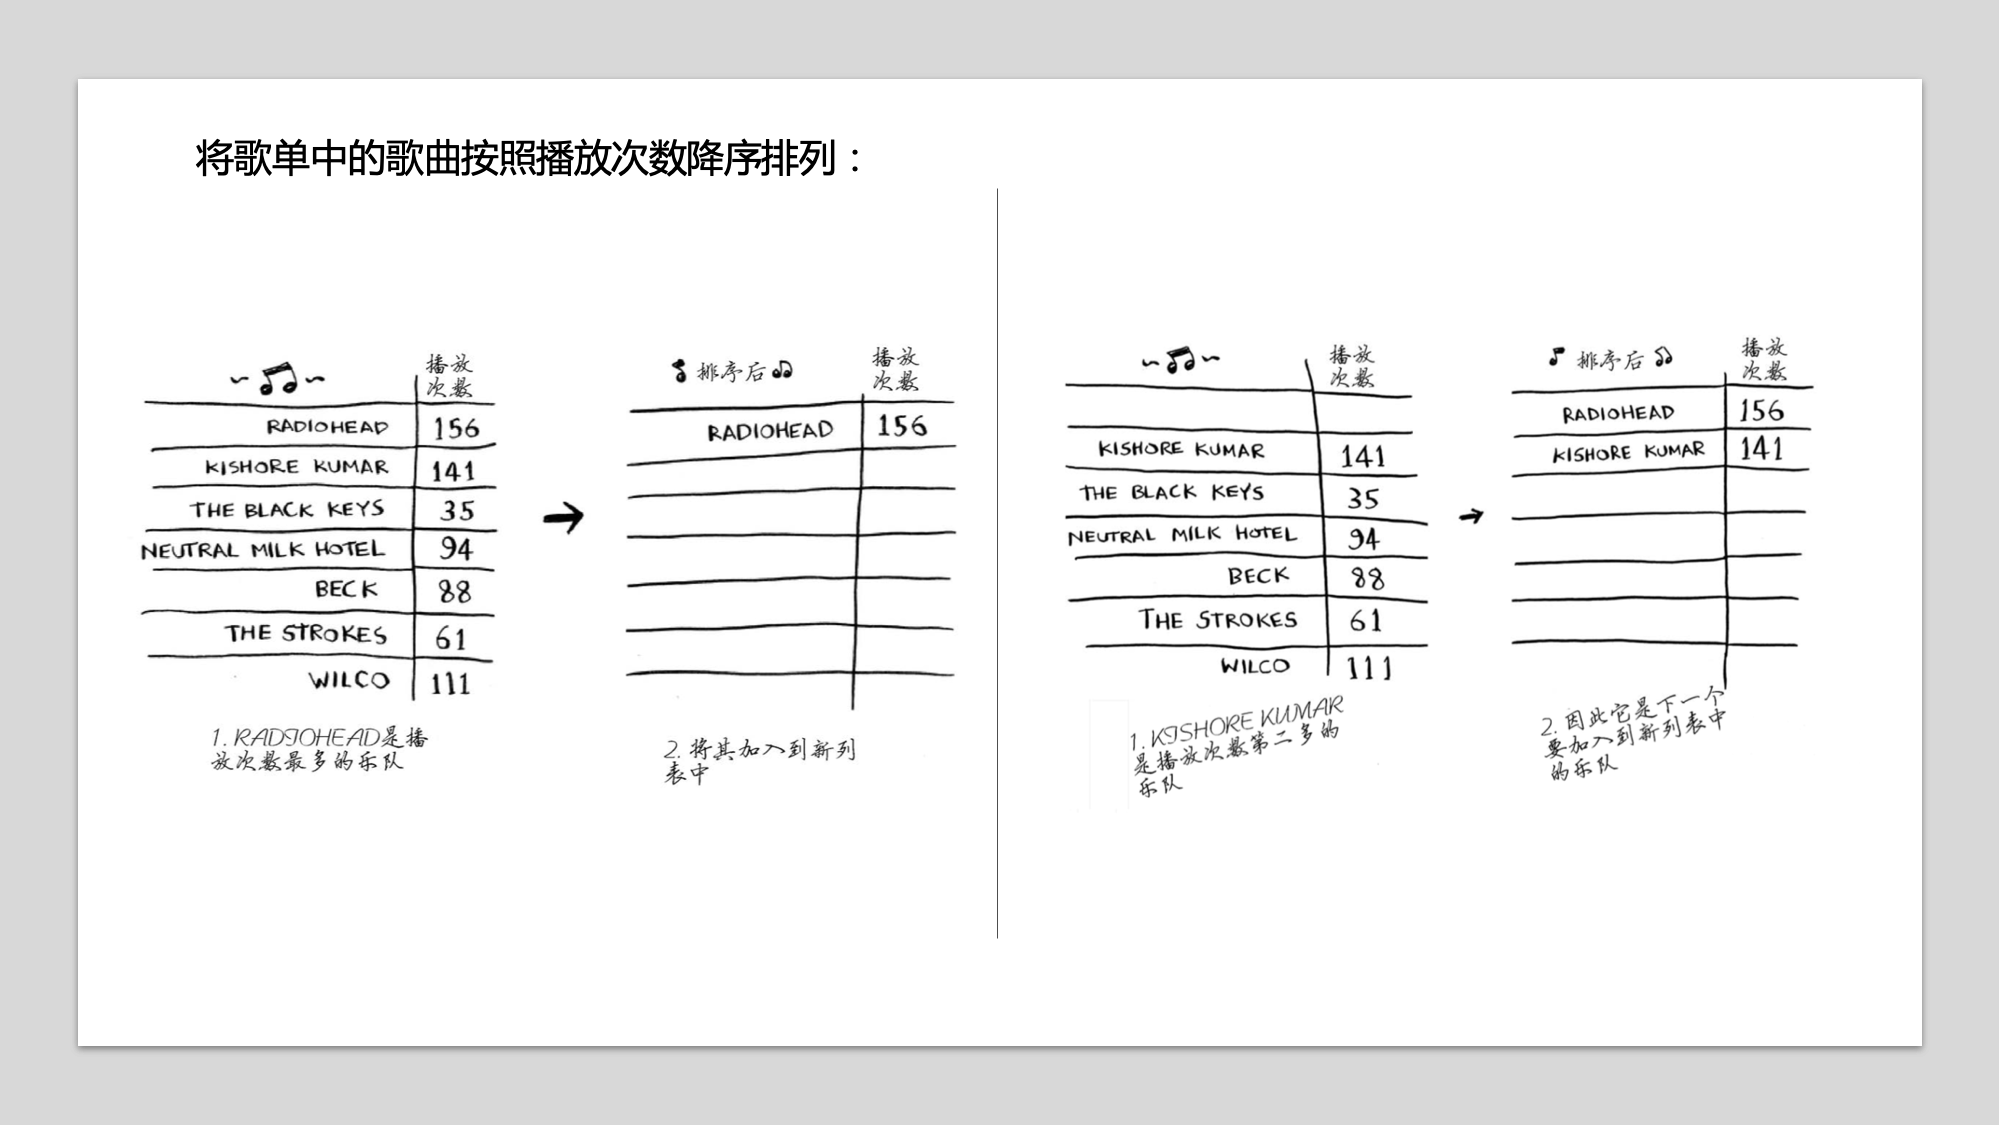 将歌单中的歌曲按照播放次数降序排列：
播放
次数
RADIOHEAD 156
KISHORE KUMAR 141
THE BLACK KEYS 35
NEUTRAL MILK HOTEL 94
BECK 88
THE STROKES 61
WILCO 111
1. RADIOHEAD是播
放次数最多的乐队
排序后
播放
次数
RADIOHEAD 156
2. 将其加入到新列
表中
播放
次数
KISHORE KUMAR 141
THE BLACK KEYS 35
NEUTRAL MILK HOTEL 94
BECK 88
THE STROKES 61
WILCO 111
1. KISHORE KUMAR
是播放次数第二多的
乐队
排序后
播放
次数
RADIOHEAD 156
KISHORE KUMAR 141
2. 因此它是下一个
要加入到新列表中
的乐队